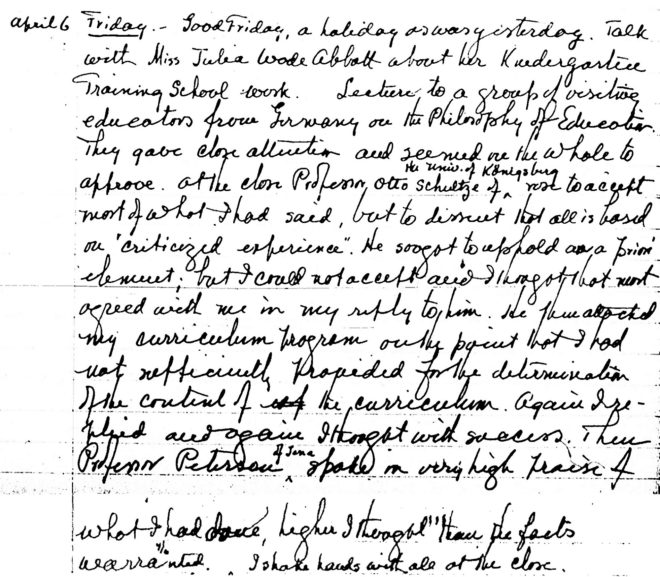 April 6 Friday. - Good Friday, a holiday as was yesterday. Talk
with Miss Julia Wade Abbott about her Kindergarten
Training School work. Lecture to a group of visiting
educators from Germany on the Philosophy of Education.
They gave close attention and seemed on the whole to
approve. At the close Professor Otto Schultze of the Univ. of Königsburg rose to accept
most of what I had said, but to dissent that all is based
on "criticized experience". He sought to uphold an a priori
element, but I could not accept and I thought that most
agreed with me in my reply to him. He then attacked
my curriculum program on the point that I had
not sufficiently provided for the determination
of the content of the curriculum. Again I re-
plied and again I thought with success. Then
Professor Peterson of Jena spoke in very high praise of
what I had done, higher I thought than the facts
warranted. I shake hands with all at the close.